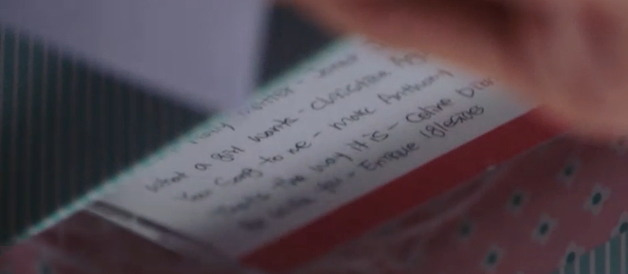 What a girl wants - Christina
You Sang to me - Marc Anthony
That's the way it is - Celine Dion
Be with you - Enrique Iglesias